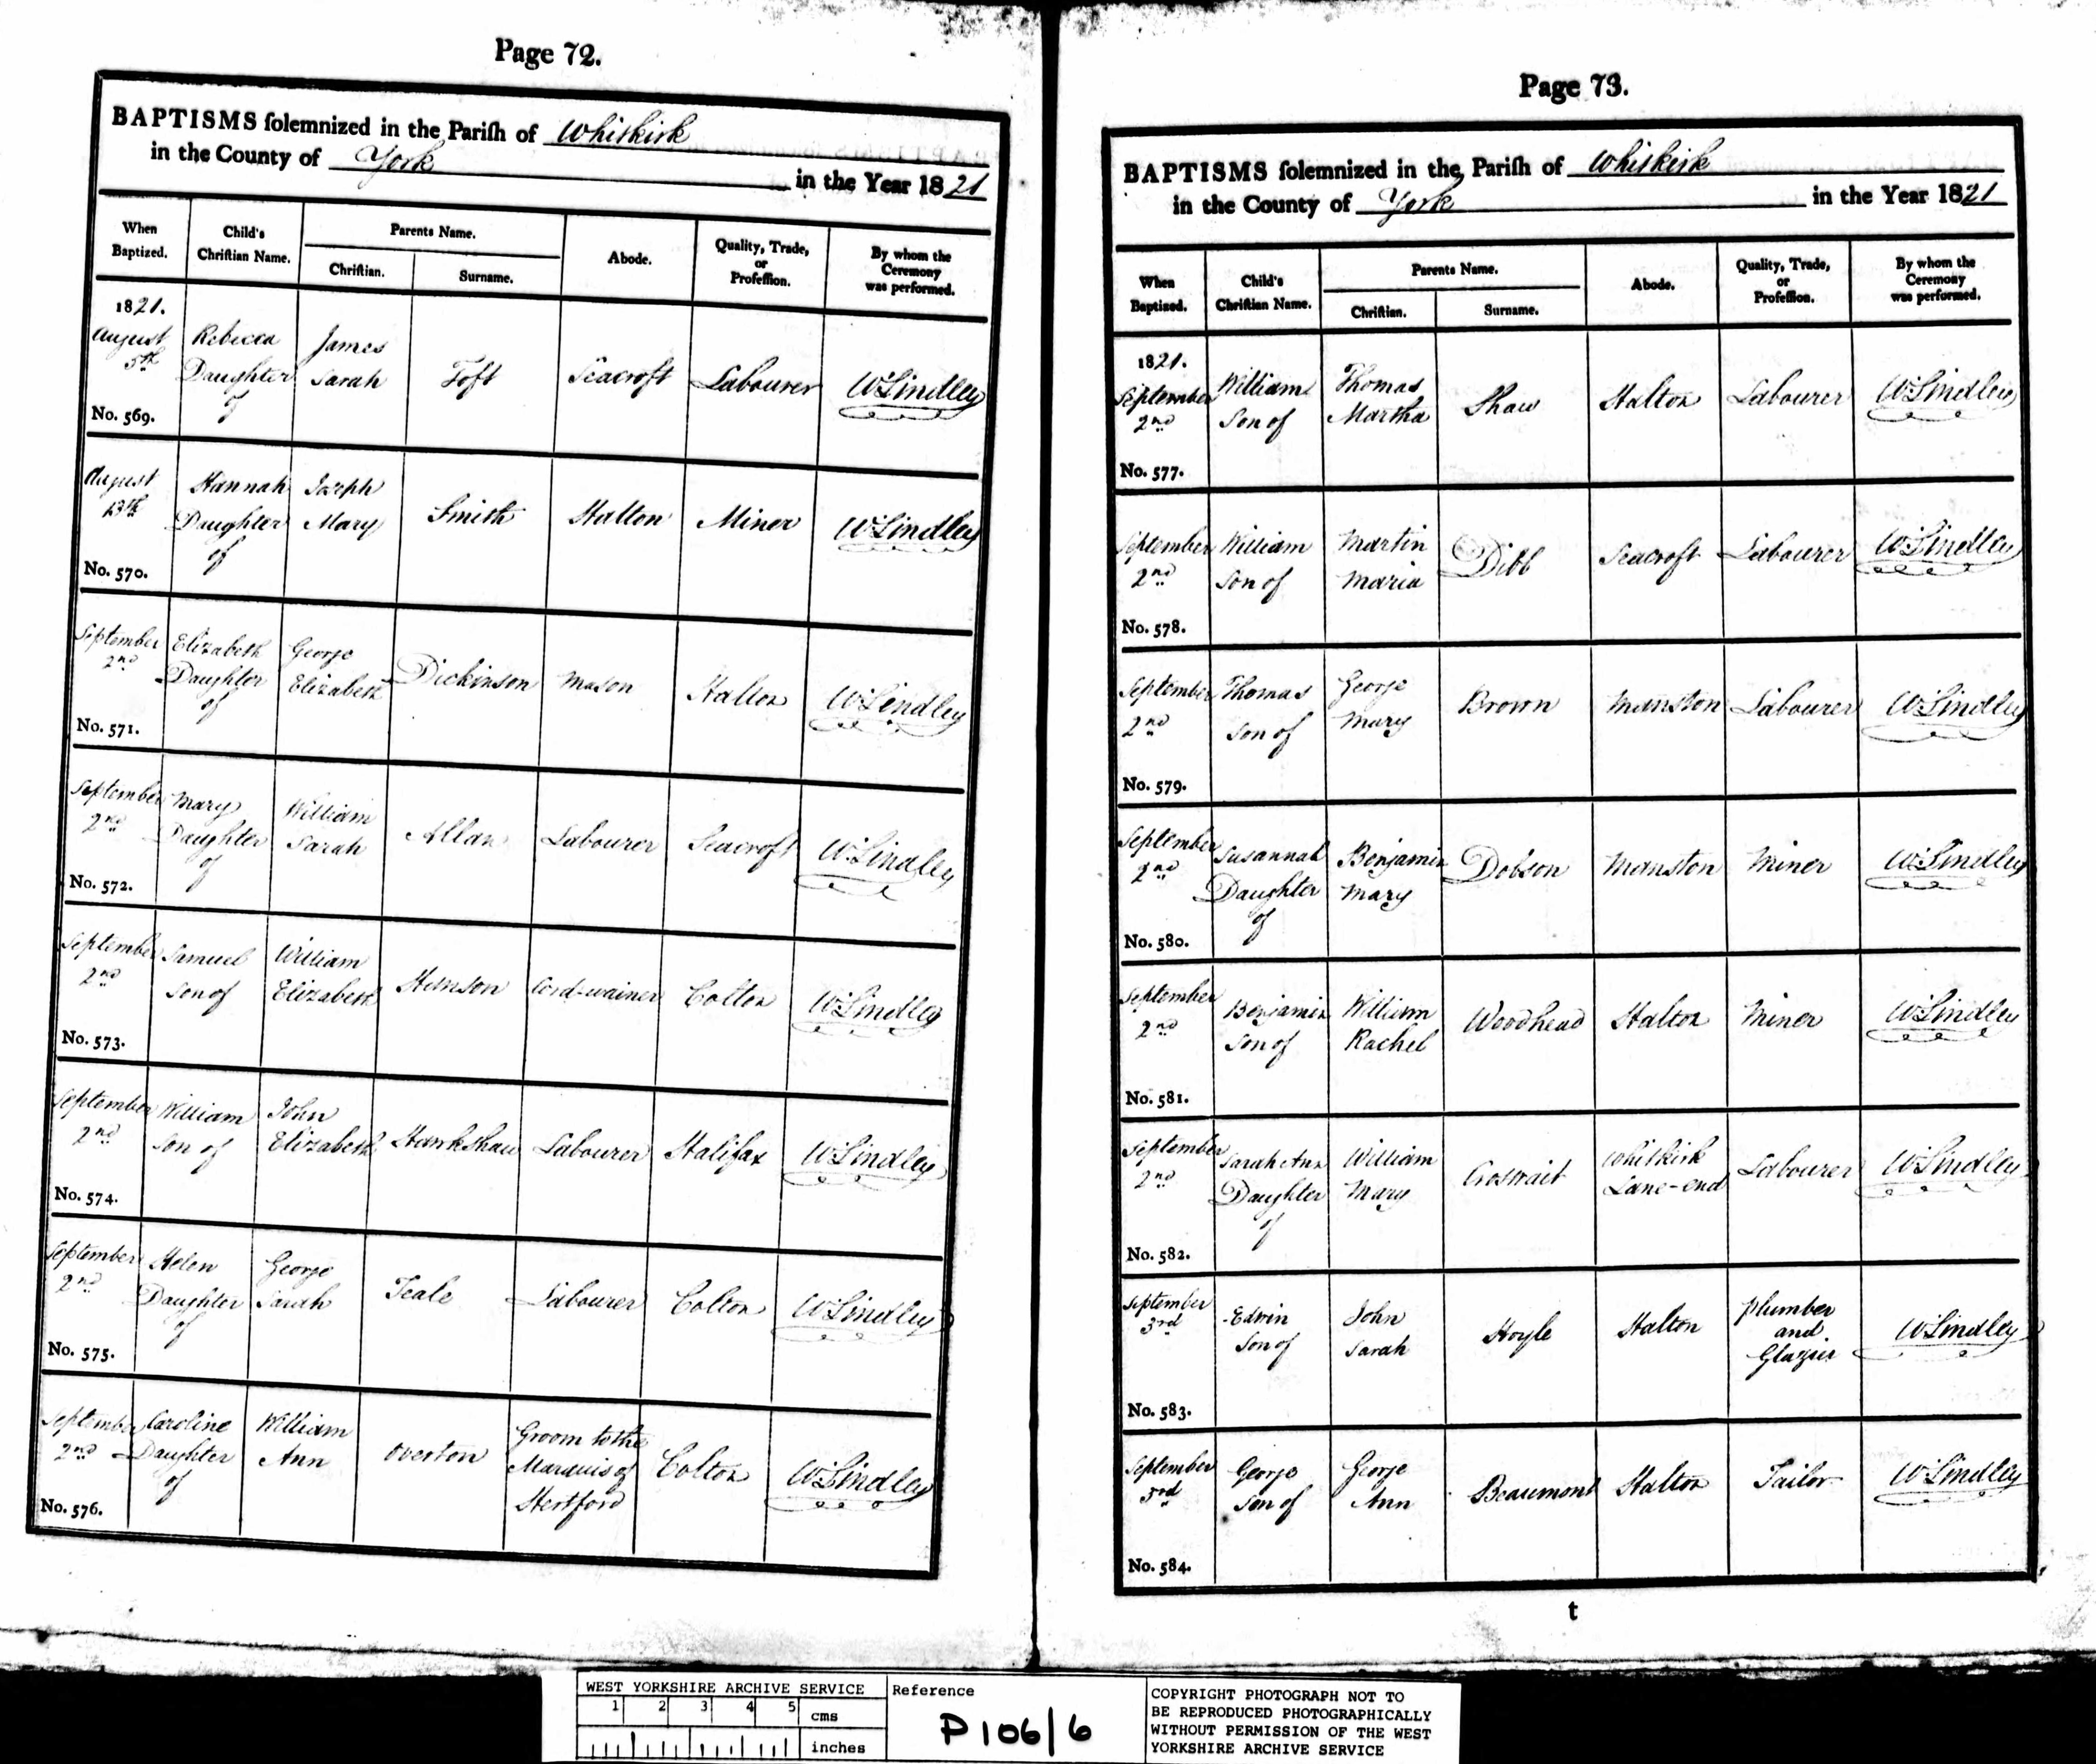 Page 72.
BAPTISMS solemnized in the Parish of Whitkirk
in the County of York in the Year 1821
When Baptized.
Child's Christian Name.
Parents Name.
Christian.
Surname.
Abode.
Quality, Trade, or Profession.
By whom the Ceremony was performed.
1821.
August 5th
No. 569.
Rebecca Daughter of
James Sarah
Toft
Seacroft
Labourer
W. Lindley
August 13th
No. 570.
Hannah Daughter of
Joseph Mary
Smith
Halton
Miner
W. Lindley
September 2nd
No. 571.
Elizabeth Daughter of
George Elizabeth
Dickinson
Mason
Halton
W. Lindley
September 2nd
No. 572.
Mary Daughter of
William Sarah
Allan
Labourer
Seacroft
W. Lindley
September 2nd
No. 573.
Samuel Son of
William Elizabeth
Hanson
Cord-wainer
Colton
W. Lindley
September 2nd
No. 574.
William Son of
John Elizabeth
Hawkshaw
Labourer
Halifax
W. Lindley
September 2nd
No. 575.
Helen Daughter of
George Sarah
Teale
Labourer
Colton
W. Lindley
September 2nd
No. 576.
Caroline Daughter of
William Ann
Overton
Groom to the Marquis of Hertford
Colton
W. Lindley
Page 73.
BAPTISMS solemnized in the Parish of Whitkirk
in the County of York in the Year 1821
When Baptized.
Child's Christian Name.
Parents Name.
Christian.
Surname.
Abode.
Quality, Trade, or Profession.
By whom the Ceremony was performed.
1821.
September 2nd
No. 577.
William Son of
Thomas Martha
Shaw
Halton
Labourer
W. Lindley
September 2nd
No. 578.
William Son of
Martin Maria
Dibb
Seacroft
Labourer
W. Lindley
September 2nd
No. 579.
Thomas Son of
George Mary
Brown
Manston
Labourer
W. Lindley
September 2nd
No. 580.
Susannah Daughter of
Benjamin Mary
Dobson
Manston
Miner
W. Lindley
September 2nd
No. 581.
Benjamin Son of
William Rachel
Woodhead
Halton
Miner
W. Lindley
September 2nd
No. 582.
Sarah Ann Daughter of
William Mary
Whitkirk Lane-end
Labourer
W. Lindley
September 3rd
No. 583.
Edwin Son of
John Sarah
Hoyle
Halton
Plumber and Glazier
W. Lindley
September 3rd
No. 584.
George Son of
George Ann
Beaumont
Halton
Tailor
W. Lindley
t
WEST YORKSHIRE ARCHIVE SERVICE
1 2 3 4 5 cms
inches
Reference
P106/6
COPYRIGHT PHOTOGRAPH NOT TO
BE REPRODUCED PHOTOGRAPHICALLY
WITHOUT PERMISSION OF THE WEST
YORKSHIRE ARCHIVE SERVICE